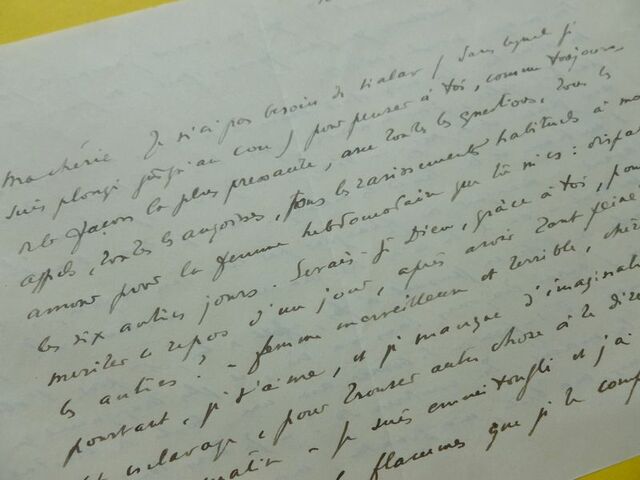 ma chérie Je n'ai pas besoin de (dans lequel je
suis plongé jusqu'au cou) pour penser à toi, comme toujours
de la façon la plus pressante, avec toutes les questions, tous les
appels, toutes les angoisses, tous les ravissements habituels à mon
amour pour la femme hebdomadaire que tu m'es : dispa
les six autres jours. Serais-je Dieu, grâce à toi, pour
mériter ce repos d'un jour, après avoir tant peiné
les autres ? - femme merveilleuse et terrible, chér
pourtant, je t'aime, et je manque d'imaginati
esclavage, pour trouver autre chose à te dire
matin - Je suis emmitouflé et j'ai
flammes que je te